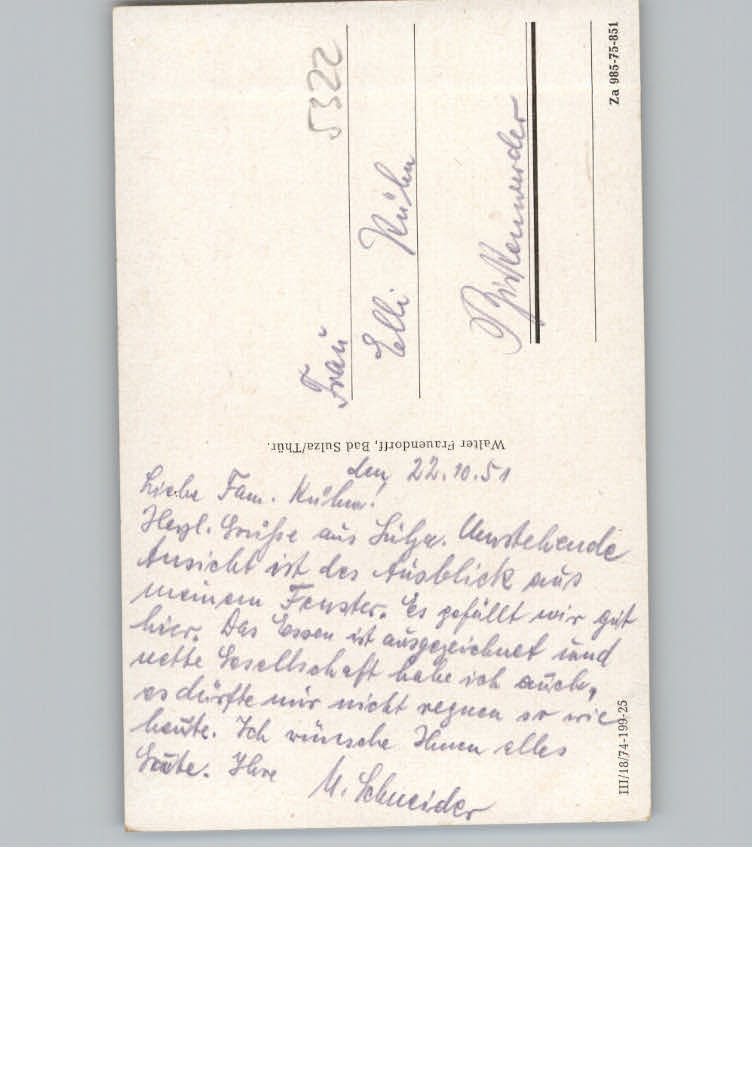 den 22.10.51
Liebe Fam. Kühn!
Herzl. Grüße aus Sulza. Umstehende
Ansicht ist des Ausblick aus
meinem Fenster. Es gefällt mir gut
hier. Das Essen ist ausgezeichnet und
nette Gesellschaft habe ich auch,
es dürfte nur nicht regnen so wie
heute. Ich wünsche Ihnen alles
Gute. Ihre
M. Schneider
Walter Frauendorff, Bad Sulza/Thür.
5322
Frau
Elli Kühn
Birkenwerder
Za 985-75-851
III/18/74-199-25